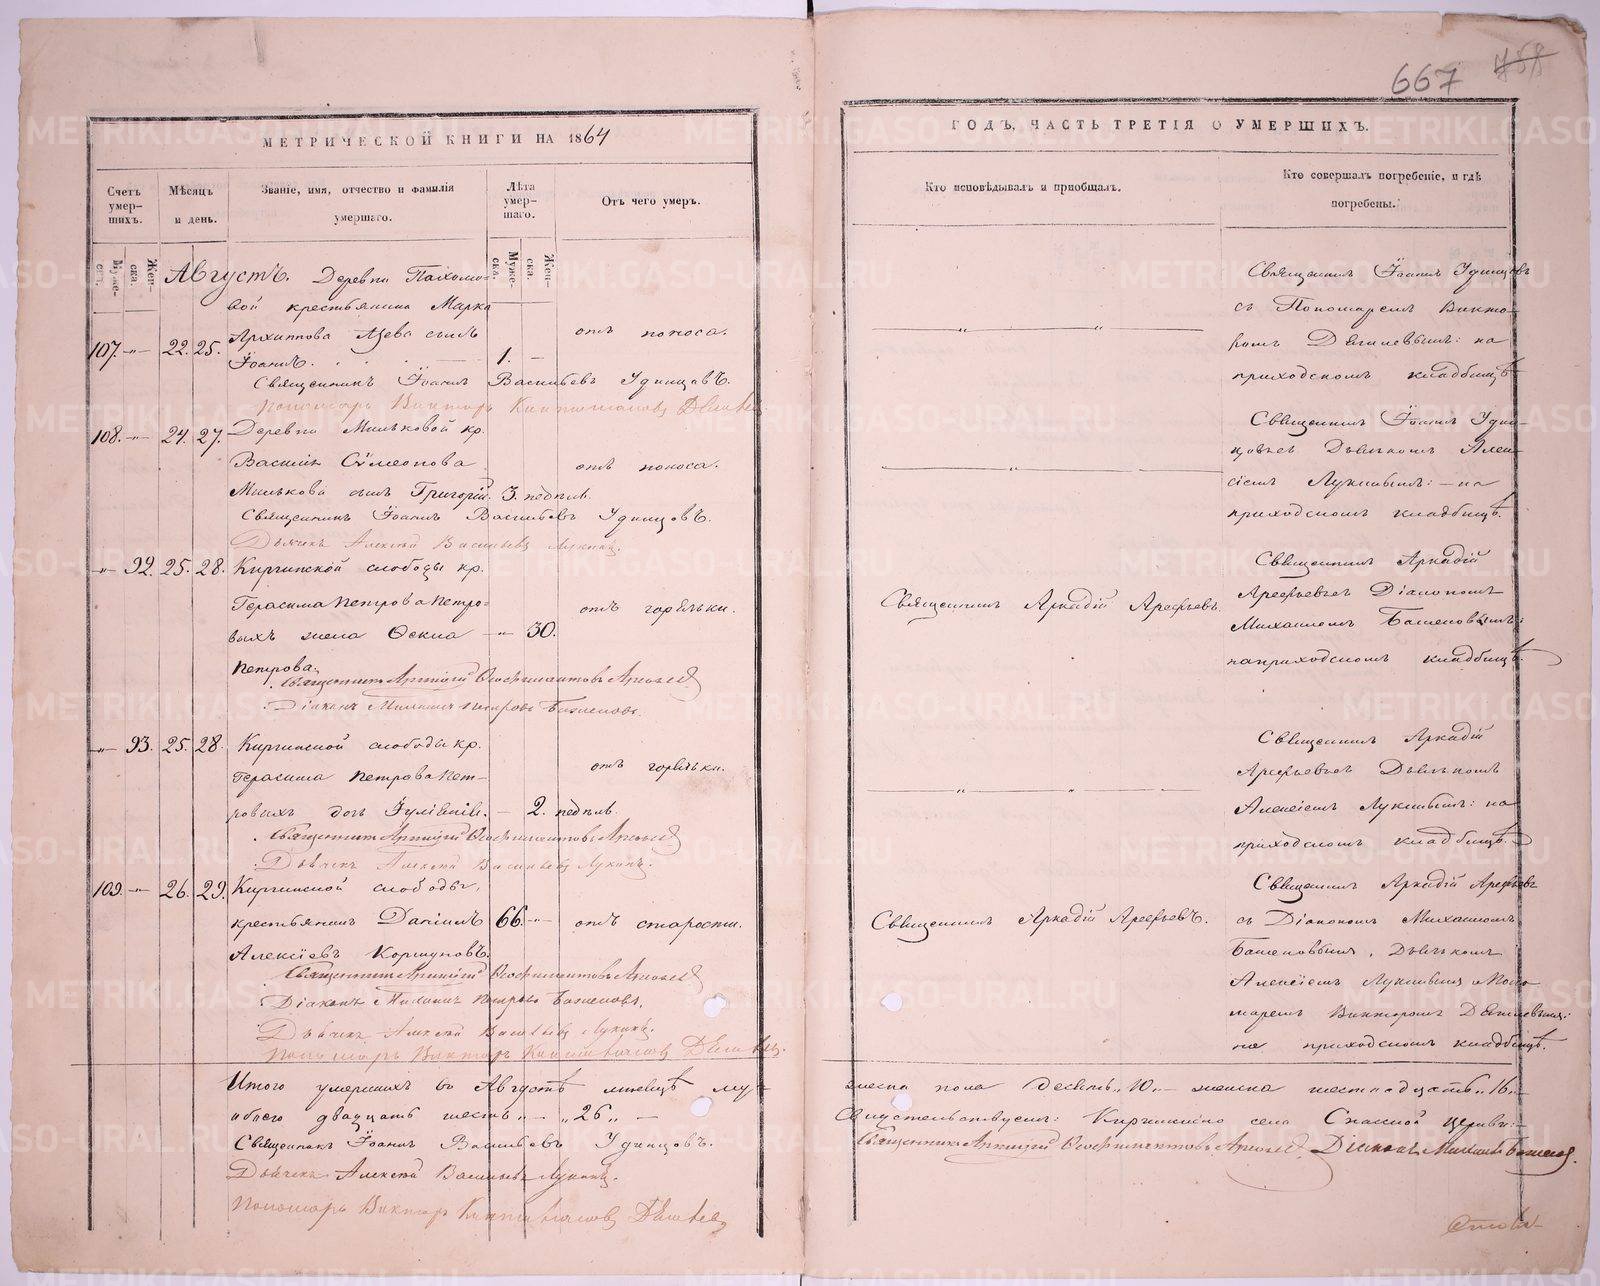 667
МЕТРИЧЕСКОЙ КНИГИ НА 1864
ГОДЪ, ЧАСТЬ ТРЕТІЯ О УМЕРШИХЪ.
Счетъ умер-шихъ.
Мѣсяцъ и день.
Званіе, имя, отчество и фамилія умершаго.
Лѣта умер-шаго.
Отъ чего умеръ.
Кто исповѣдывалъ и пріобщалъ.
Кто совершалъ погребеніе, и гдѣ погребены.
Муже-ска.
Жен-ска.
Муже-ска.
Жен-ска.
Августъ. Деревни Пахомо-
вой крестьянина Марка
Архиппова сынъ
107. 22. 25. Іоаннъ. 1. отъ поноса.
Священникъ Іоаннъ Васильевъ Удинцовъ.
Пономарь Викторъ
Священникъ Іоаннъ Удинцовъ
съ Пономаремъ Викто-
ромъ на
приходскомъ кладбищѣ
108. 24. 27. Деревни Мильковой кр.
Василія Сѵмеонова
Милькова сынъ Григорій. 3. недѣль. отъ поноса.
Священникъ Іоаннъ Васильевъ Удинцовъ.
Дьячекъ Алексѣй Васильевъ Лукинъ.
Священникъ Іоаннъ Удин-
цовъ съ Дьячкомъ Алек-
сіемъ Лукинымъ: на
приходскомъ кладбищѣ.
92. 25. 28. Киргинской слободы кр.
Герасима Петрова Петро-
выхъ жена 30. отъ горячки.
Петрова.
Священникъ Аркадій Арефьевъ
Діаконъ Михаилъ Петровъ Баженовъ.
Священникъ Аркадій Арефьевъ.
Священникъ Аркадій
Арефьевъ съ Діакономъ
Михаиломъ Баженовымъ:
на приходскомъ кладбищѣ.
93. 25. 28. Киргинской слободы кр.
Герасима Петрова Пет-
ровыхъ дочь Іуліанія. 2. недѣль. отъ горячки.
Священникъ Аркадій Арефьевъ
Дьячекъ Алексѣй Васильевъ Лукинъ.
Священникъ Аркадій
Арефьевъ съ Дьячкомъ
Алексіемъ Лукинымъ: на
приходскомъ кладбищѣ.
109. 26. 29. Киргинской слободы,
крестьянинъ Даніилъ 66. отъ старости.
Алексіевъ Коршуновъ.
Священникъ Аркадій Арефьевъ
Діаконъ Михаилъ Петровъ Баженовъ.
Дьячекъ Алексѣй Васильевъ Лукинъ.
Пономарь Викторъ
Священникъ Аркадій Арефьевъ.
Священникъ Аркадій Арефьевъ
съ Діакономъ Михаиломъ
Баженовымъ, Дьячкомъ
Алексіемъ Лукинымъ и Поно-
маремъ Викторомъ
на приходскомъ кладбищѣ.
Итого умершихъ въ Августѣ мѣсяцѣ му-
жеска пола десять „10„ женска шестнадцать „16„
обоего двадцать шесть „26„
Свидетельствуемъ: Киргинскаго села Спасской церкви:
Священникъ Іоаннъ Васильевъ Удинцовъ.
Священникъ Аркадій Арефьевъ. Діаконъ Михаилъ Баженовъ.
Дьячекъ Алексѣй Васильевъ Лукинъ.
Пономарь Викторъ
METRIKI.GASO-URAL.RU